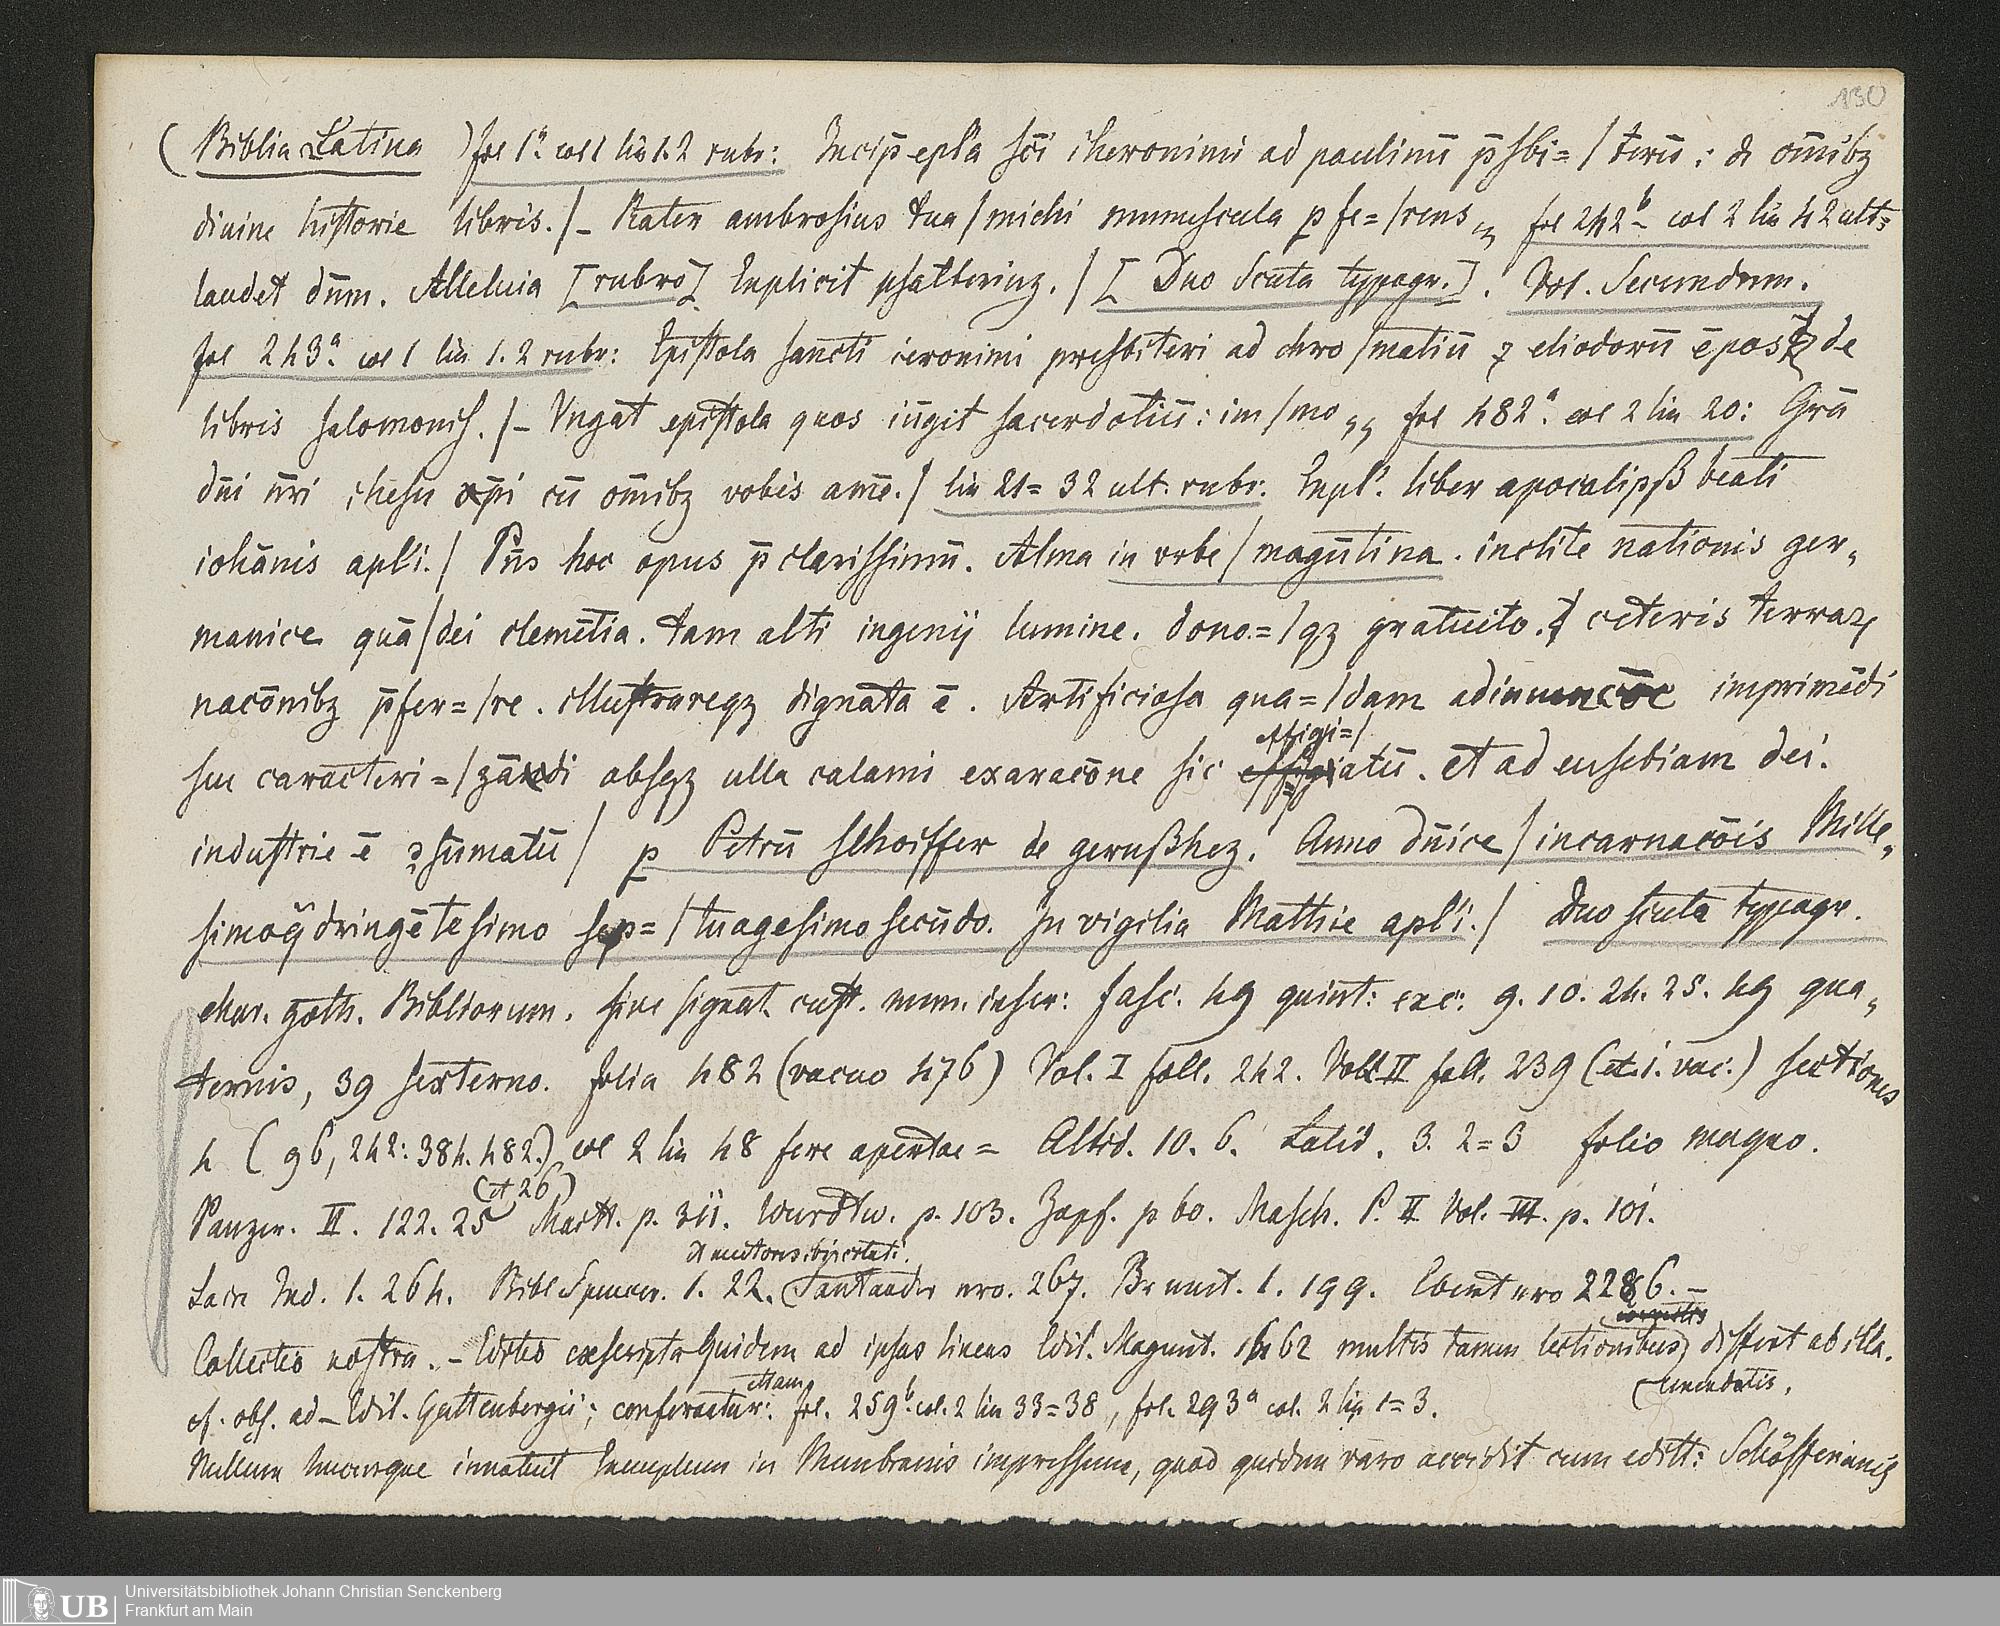 130
( Biblia Latina ) fol 1ª. col 1 lin 1. 2 rubr: Incip̄ epl'a sc̄i iheronimi ad paulinū p̄sbi= / terū : de om̄ibz
diuine historie libris. / – Frater ambrosius tua / michi munuscula pfe= / rens „ fol 242ᵇ col 2 lin 42 ult:
laudet dn̄m. Alleluia [rubro] Explicit psalteriuz. / [ Duo Scuta typogr. ] . Vol. Secundum.
fol 243ª. col 1 lin 1. 2 rubr: Epistola sancti ieronimi presbiteri ad chro / matiū ⁊ eliodorū ēpos de
libris salomonis. / – Vngat epistola quos iūgit sacerdotiū : im / mo „ fol 482ª. col 2 lin 20: Grā
dn̄i nr̄i ihesu xp̄i cū om̄ibz vobis amē. / lin 21= 32 ult. rubr. Expl'. liber apocalipß beati
iohānis apl'i. / Pn̄s hoc opus p̄clarissimū. Alma in vrbe / magūtina. inclite nationis ger„
manice quā / dei clemētia. tam alti ingenij lumine. dono= / qz gratuito. ceteris terraꝝ
nacōnibz p̄fer= / re. illustrareqz dignata ē. Artificiosa qua= / dam adinuencōe imprimēdi
seu caracteri= / zandi absqz ulla calami exaracōne sic effigi= / atū. et ad eusebiam dei.
industrie ē ꝯsūmatū / p Petrū schoiffer de gernßhez. Anno dn̄ice / incarnacōis Mille„
simoq̄dringētesimo sep= / tuagesimo secūdo. In vigilia Mathie apl'i. / Duo scuta typogr.
char. goth. Bibliorum. sine signat. cust. num. inser: fasc. 49 quint: exc: 9. 10. 24. 25. 49 qua„
ternis, 39 sexterno. folia 482 (vacuo 476) Vol. I foll. 242. Vol. II foll. 239 (et 1. vac.) sectiones
4 (96, 242: 384. 482.) col 2 lin 48 fere apertae = Altid. 10. 6. Latid. 3. 2=3 folio magno.
Panzer. II. 122. 25 (et 26) Maitt. p. 311. Wurdtw. p. 103. Zapf. p 60. Masch. P. II Vol. III. p. 101.
Laire Ind. 1. 264. Bibl Spencer. 1. 22. (et auctores ibi citati. Santander nro. 267. Brunet. 1. 199. Ebert nro 2286. –
Collectio nostra. – Editio exscripta quidem ad ipsas lineas Edit. Magunt. 1462 multis tamen lectionibus emendatis, differt ab illa.
cf. obs. ad – Edit. Guttenbergii; conferantur: etiam fol. 259ᵇ. col. 2 lin 33=38, fol. 293ª col. 2 lin 1=3.
Nullum hucusque innotuit Exemplum in Membranis impressum, quod quidem raro accidit cum editt: Schöfferianis
UB Universitätsbibliothek Johann Christian Senckenberg
Frankfurt am Main